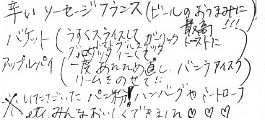 辛いソーセージフランス(ビールのおつまみに
最高!!!
バゲット(うすくスライスしてガーリックトーストに
アップルパイ(一度あたため直し、バニラアイス
クリームをのせて!!
※いただいたパン粉!ハンバーグやミートローフ
etc みんなおいしくできました♡♡♡